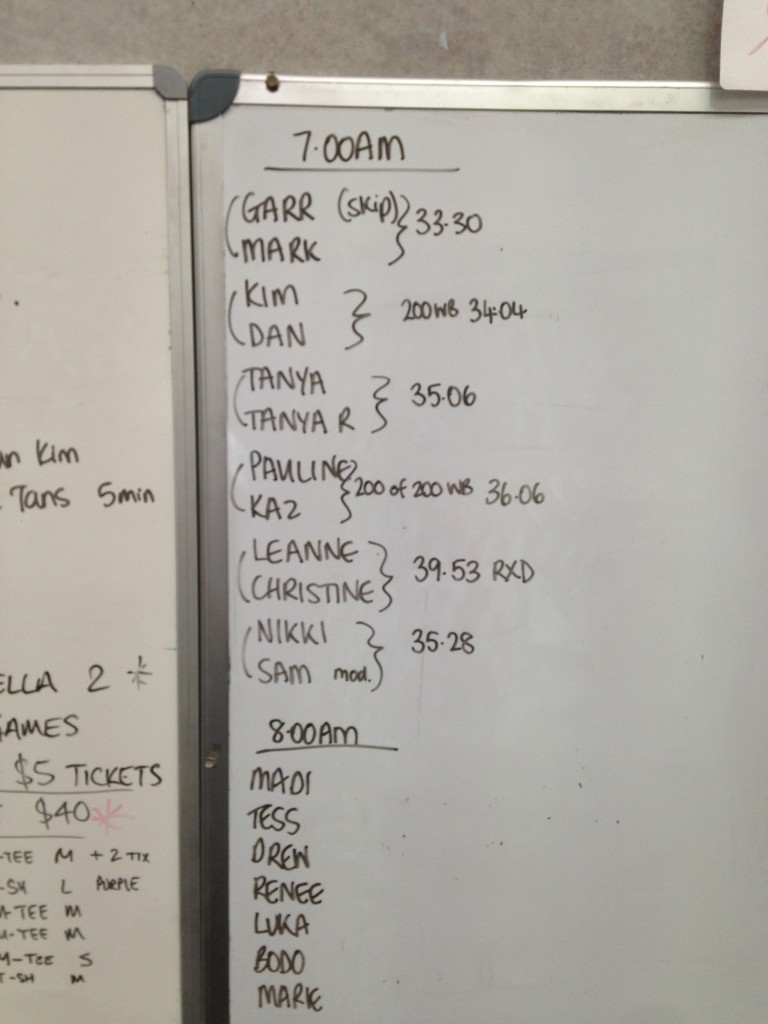 7.00AM
GARR (SKIP) 33.30
MARK
KIM
200 WB 34.04
DAN
TANYA
35.06
TANYA R
PAULINE
200 of 200 WB 36.06
KAZ
LEANNE
39.53 RXD
CHRISTINE
NIKKI
35.28
SAM mod.
8.00AM
MADI
TESS
DREW
RENEE
LUKA
BODO
MARK
Kim
Tans 5min
ELLA 2 *
AMES
$5 TICKETS
$40 *
-TEE M + 2 TIX
-SH L PURPLE
-TEE M
-TEE M
M-TEE S
T-SH M